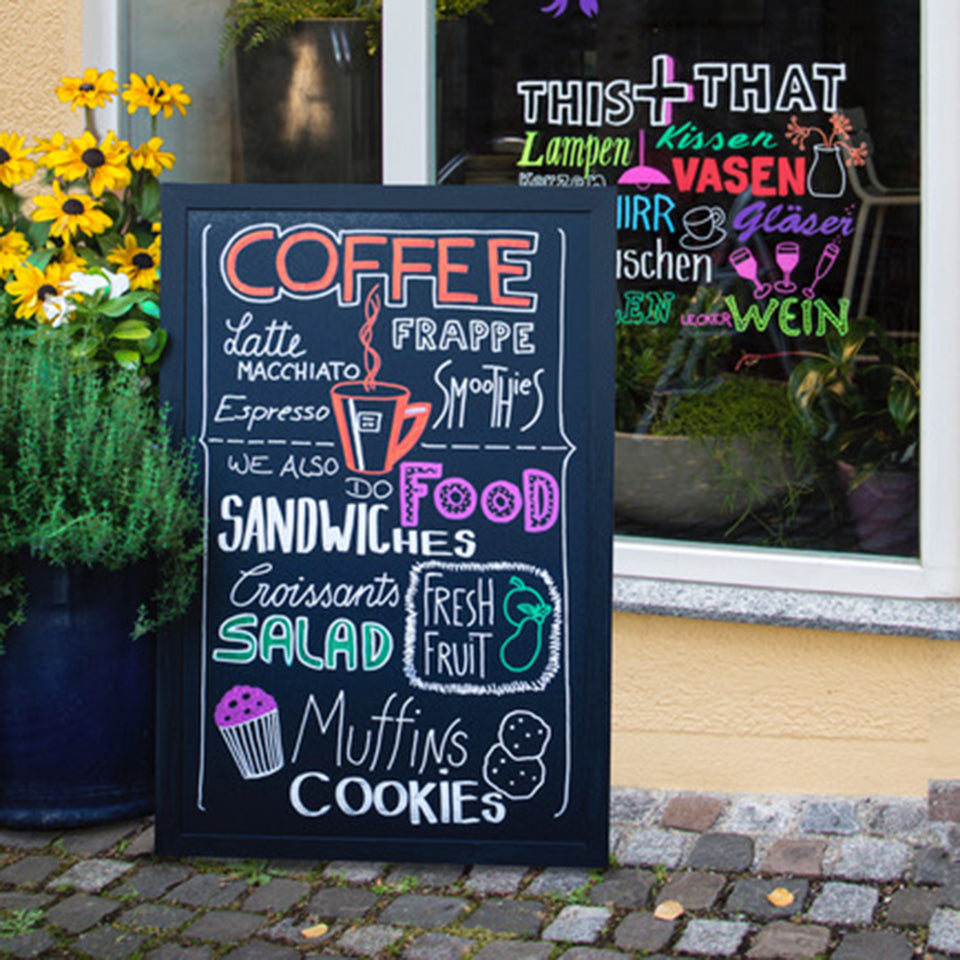 COFFEE
Latte
MACCHIATO
FRAPPE
Espresso
SMOOTHIES
WE ALSO
DO FOOD
SANDWICHES
Croissants
SALAD
FRESH
FRUIT
Muffins
COOKIES
THIS + THAT
Lampen Kissen
Kerzen VASEN
Gläser
LECKER WEIN